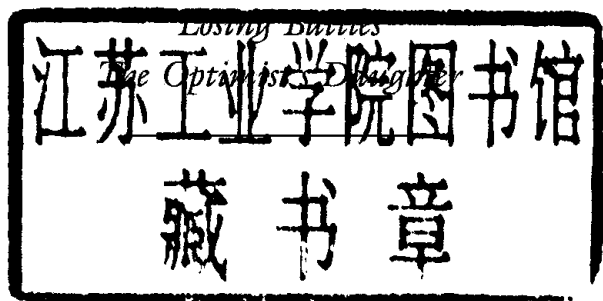 Losing Battles
The Optimist's Daughter
江苏工业学院图书馆
藏书章